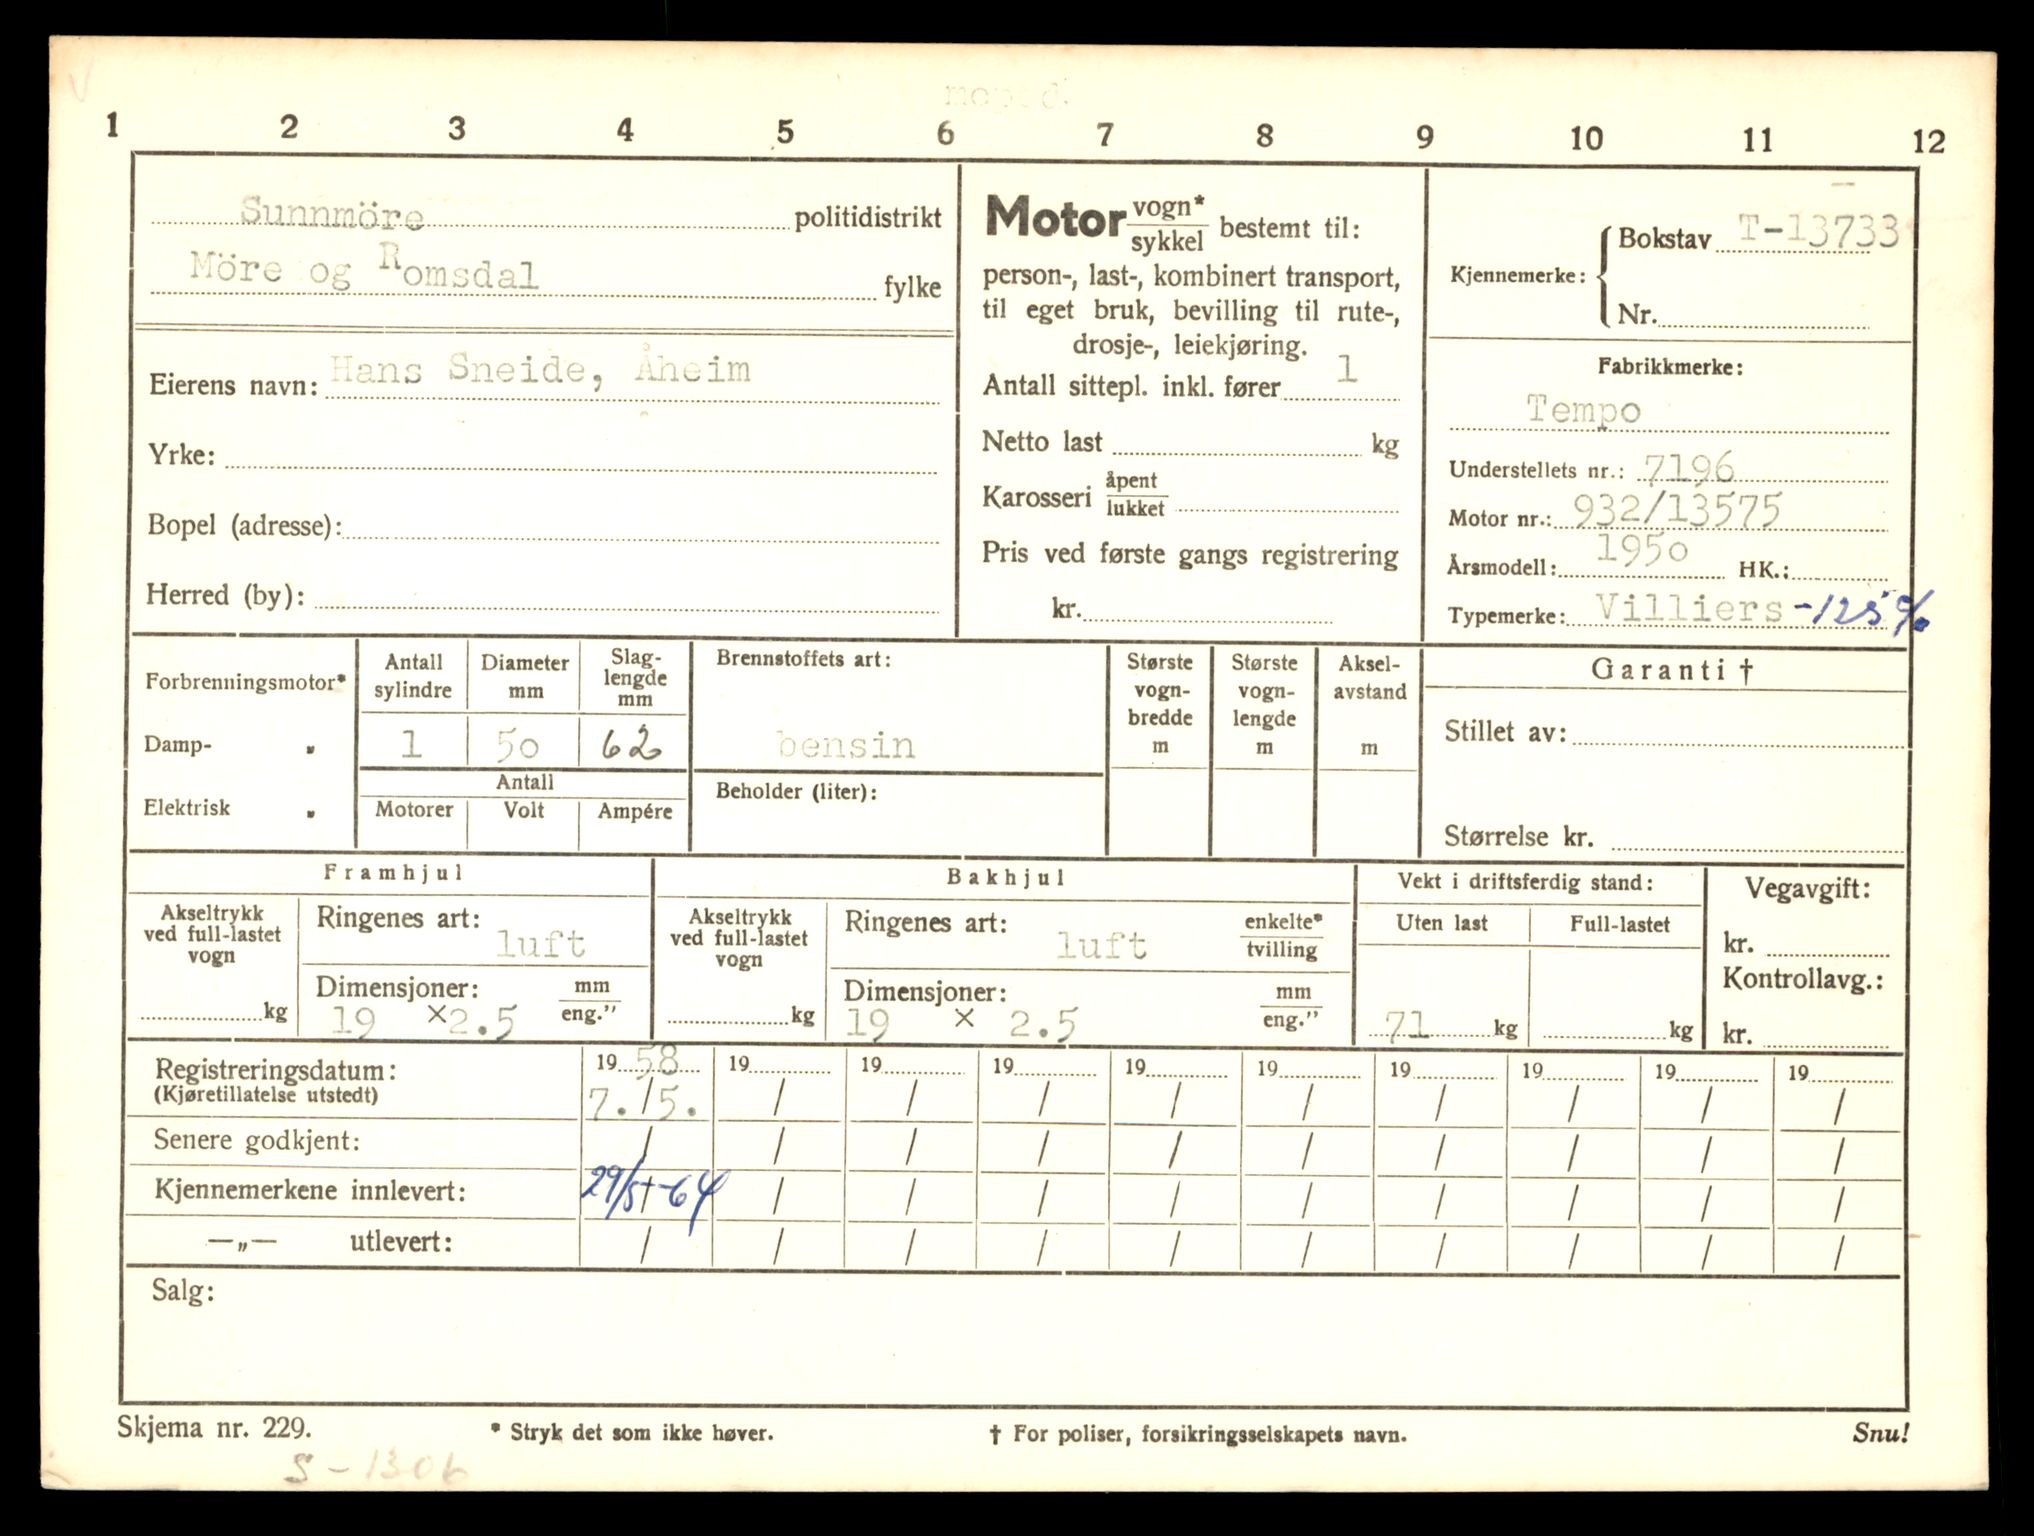 moped.
1 2 3 4 5 6 7 8 9 10 11 12
Sunnmöre politidistrikt
Möre og Romsdal fylke
Eierens navn: Hans Sneide, Åheim
Yrke:
Bopel (adresse):
Herred (by):
Motor vogn* / sykkel bestemt til:
person-, last-, kombinert transport,
til eget bruk, bevilling til rute-,
drosje-, leiekjøring.
Antall sittepl. inkl. fører 1
Netto last kg
Karosseri åpent / lukket
Pris ved første gangs registrering
kr.
Kjennemerke: Bokstav T-13733
Nr.
Fabrikkmerke:
Tempo
Understellets nr.: 7196
Motor nr.: 932/13575
Årsmodell: 1950 HK.:
Typemerke: Villiers -125 %
Forbrenningsmotor*
Damp- „
Elektrisk „
Antall sylindre
1
Diameter mm
50
Slag-
lengde
mm
62
Antall
Motorer Volt Ampére
Brennstoffets art:
bensin
Beholder (liter):
Største
vogn-
bredde
m
Største
vogn-
lengde
m
Aksel-
avstand
m
Garanti †
Stillet av:
Størrelse kr.
Framhjul
Akseltrykk
ved full-lastet
vogn
kg
Ringenes art:
luft
Dimensjoner: mm / eng."
19 ×2.5
Bakhjul
Akseltrykk
ved full-lastet
vogn
kg
Ringenes art: enkelte* / tvilling
luft
Dimensjoner: mm / eng."
19 × 2.5
Vekt i driftsferdig stand:
Uten last Full-lastet
71 kg kg
Vegavgift:
kr.
Kontrollavg.:
kr.
Registreringsdatum: 19 58 19 19 19 19 19 19 19 19 19
(Kjøretillatelse utstedt) 7. / 5. / / / / / / / / /
Senere godkjent: / / / / / / / / / /
Kjennemerkene innlevert: 29/5-64 / / / / / / / / /
—„— utlevert: / / / / / / / / / /
Salg:
Skjema nr. 229. * Stryk det som ikke høver. † For poliser, forsikringsselskapets navn. Snu!
S-1306